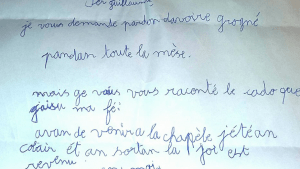 cher guillaume
je vous demande pardon davoire grogné
pandan toute la mèse.
mais ge vais vous raconté le cado que
jaisu ma fé:
avan de venir a la chapèle jétéan
colair et an sortan la joi est
revenu